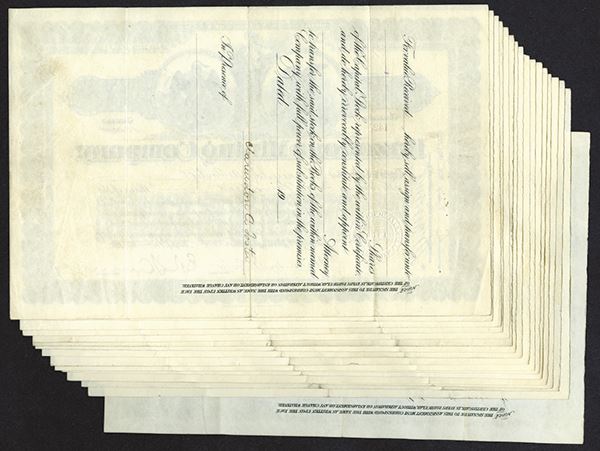 For value Received, hereby sell, assign and transfer unto
Shares
of the Capital Stock represented by the within Certificate
and do hereby irrevocably constitute and appoint
Attorney
to transfer the said stock on the Books of the within named
Company with full power of substitution in the premises.
Dated 19
In Presence of
NOTICE THE SIGNATURE TO THIS ASSIGNMENT MUST CORRESPOND WITH THE NAME AS WRITTEN UPON THE FACE
OF THE CERTIFICATE, IN EVERY PARTICULAR, WITHOUT ALTERATION OR ENLARGEMENT OR ANY CHANGE WHATEVER.
Mining Company
NOTICE THE SIGNATURE TO THIS ASSIGNMENT MUST CORRESPOND WITH THE NAME AS WRITTEN UPON THE FACE
OF THE CERTIFICATE, IN EVERY PARTICULAR, WITHOUT ALTERATION OR ENLARGEMENT OR ANY CHANGE WHATEVER.